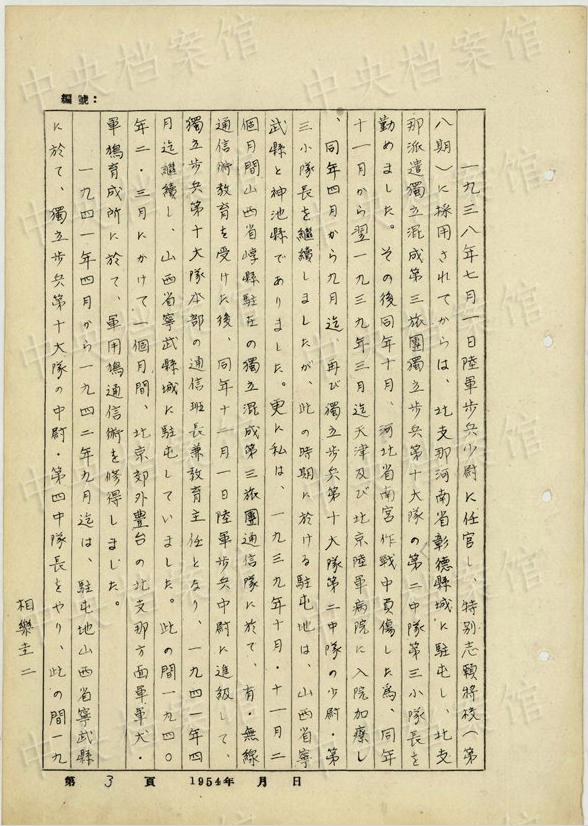 編號:
一九三八年七月一日陸軍歩兵少尉に任官し、特別志願將校（第
八期）に採用されてからは、北支那河南省彰德縣城に駐屯し、北支
那派遣獨立混成第三旅團獨立歩兵第十大隊の第二中隊第三小隊長を
勤めました。その後同年十月、河北省南宮作戰中負傷した爲、同年
十一月から翌一九三九年三月迄天津及び北京陸軍病院に入院加療し
、同年四月から九月迄、再び獨立歩兵第十大隊第二中隊の少尉・第
三小隊長を繼續しましたが、此の時期に於ける駐屯地は、山西省寧
武縣と神池縣でありました。更に私は、一九三九年十月・十一月二
個月間山西省崞縣駐在の獨立混成第三旅團通信隊に於て、有・無線
通信術教育を受けた後、同年十二月一日陸軍歩兵中尉に進級して、
獨立歩兵第十大隊本部の通信班長兼教育主任となり、一九四一年四
月迄繼續し、山西省寧武縣城に駐屯していました。此の間一九四〇
年二・三月にかけて一個月間、北京郊外豊台の北支那方面軍軍犬・
軍鳩育成所に於て、軍用鳩通信術を修得しました。
一九四一年四月から一九四二年九月迄は、駐屯地山西省寧武縣
に於て、獨立歩兵第十大隊の中尉・第四中隊長をやり、此の間一九
相樂圭二
第 3 頁 1954年 月 日
中央档案馆